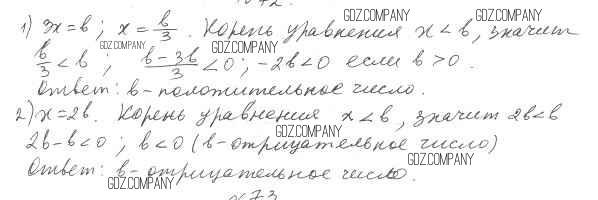 1) 3x = b; x = b/3. Корень уравнения x < b, значит
b/3 < b; (b - 3b)/3 < 0; -2b < 0 если b > 0.
Ответ: b - положительное число.
2) x = 2b. Корень уравнения x < b, значит 2b < b
2b - b < 0; b < 0 (b - отрицательное число)
Ответ: b - отрицательное число.
GDZ.COMPANY
GDZ.COMPANY
GDZ.COMPANY
GDZ.COMPANY
GDZ.COMPANY
GDZ.COMPANY